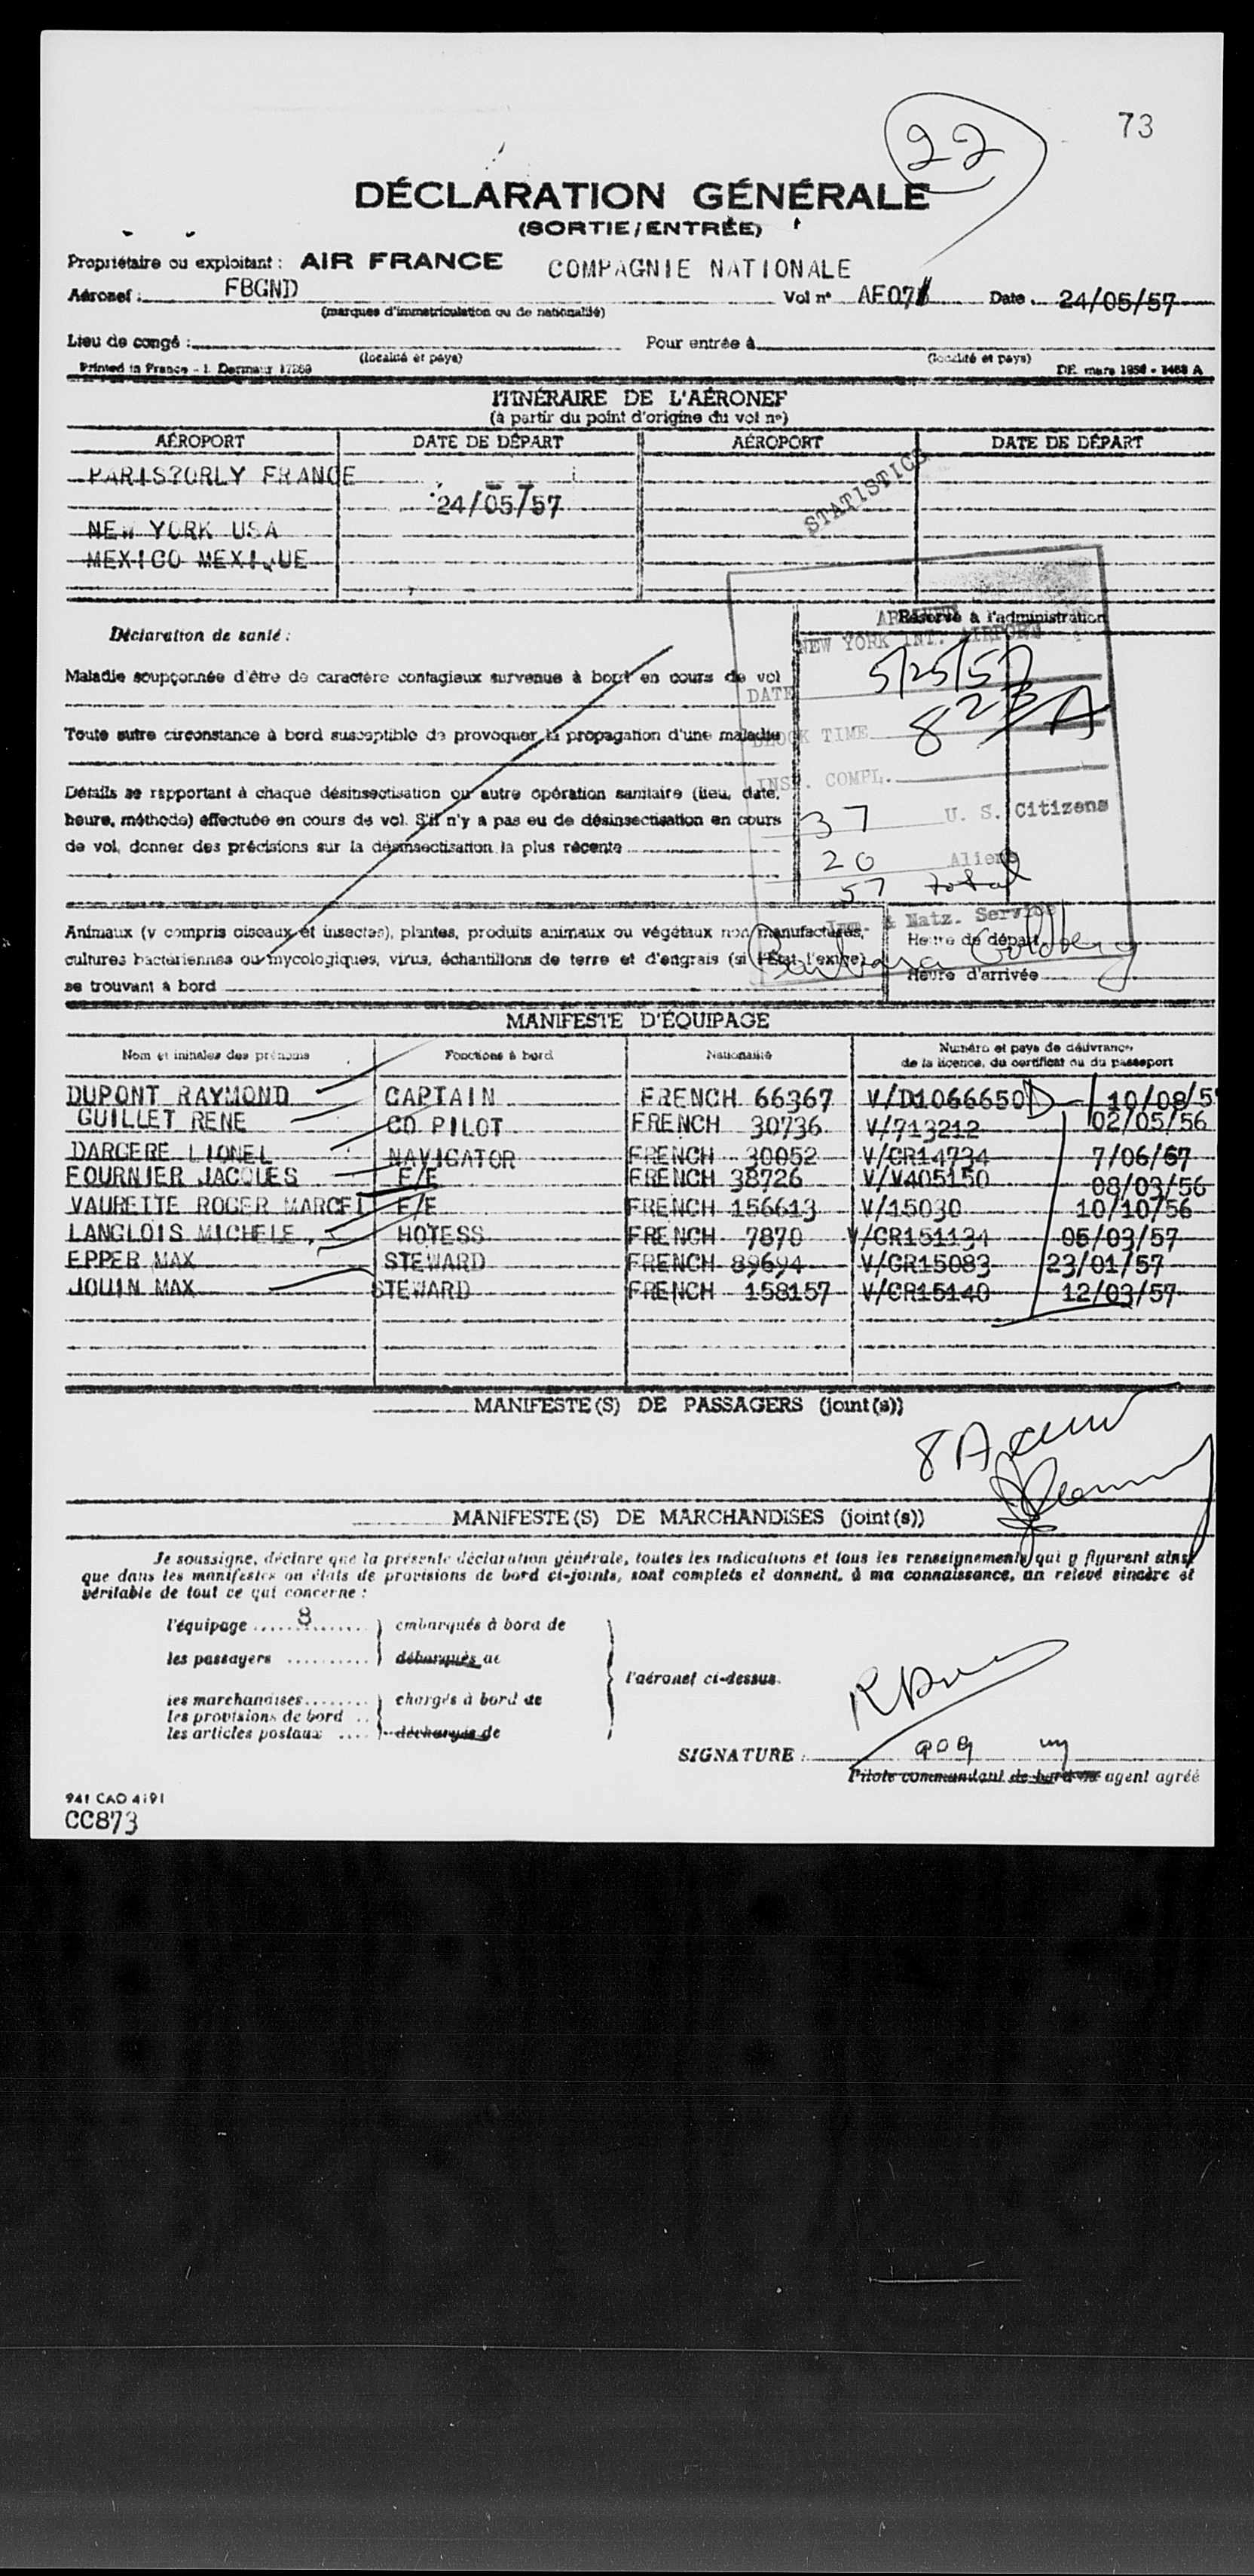 73
22
DÉCLARATION GÉNÉRALE
(SORTIE/ENTRÉE)
Propriétaire ou exploitant : AIR FRANCE COMPAGNIE NATIONALE
Aéronef : FBGND Vol n° AF07 Date 24/05/57
(marques d'immatriculation ou de nationalité)
Lieu de congé : Pour entrée à
(localité et pays) (localité et pays)
Printed in France - I. Dermaur 17269 DE. mars 1956 - 3468 A
ITINÉRAIRE DE L'AÉRONEF
(à partir du point d'origine du vol n°)
AÉROPORT DATE DE DÉPART AÉROPORT DATE DE DÉPART
PARIS?ORLY FRANCE
24/05/57
STATISTICS
NEW YORK USA
MEXICO MEXIQUE
Déclaration de santé :
Réservé à l'administration
NEW YORK INT. AIRPORT
Maladie soupçonnée d'être de caractère contagieux survenue à bord en cours de vol
DATE 5/25/57
Toute autre circonstance à bord susceptible de provoquer la propagation d'une maladie
BLOCK TIME 823 A
INSP. COMPL.
Détails se rapportant à chaque désinsectisation ou autre opération sanitaire (lieu, date,
heure, méthode) effectuée en cours de vol. S'il n'y a pas eu de désinsectisation en cours
de vol, donner des précisions sur la désinsectisation la plus récente
37 U. S. Citizens
20 Aliens
57 total
Imm. & Natz. Service
Animaux (y compris oiseaux et insectes), plantes, produits animaux ou végétaux non manufacturés,
cultures bactériennes ou mycologiques, virus, échantillons de terre et d'engrais (si l'État l'exige)
se trouvant à bord
Heure de départ
Heure d'arrivée
MANIFESTE D'ÉQUIPAGE
Nom et initiales des prénoms Fonctions à bord Nationalité Numéro et pays de délivrance
de la licence, du certificat ou du passeport
DUPONT RAYMOND CAPTAIN FRENCH 66367 V/D1066650 D 10/08/5
GUILLET RENE CO PILOT FRENCH 30736 V/713212 02/05/56
DARGERE LIONEL NAVIGATOR FRENCH 30052 V/CR14734 7/06/57
FOURNIER JACQUES E/E FRENCH 38726 V/V405150 08/03/56
VAURETTE ROGER MARCEL E/E FRENCH 156613 V/15030 10/10/56
LANGLOIS MICHELE HOTESS FRENCH 7870 V/CR151134 05/03/57
EPPER MAX STEWARD FRENCH 89694 V/CR15083 23/01/57
JOUIN MAX STEWARD FRENCH 158157 V/CR15140 12/03/57
MANIFESTE(S) DE PASSAGERS (joint(s))
8 A
MANIFESTE(S) DE MARCHANDISES (joint(s))
Je soussigné, déclare que la présente déclaration générale, toutes les indications et tous les renseignements qui y figurent ainsi
que dans les manifestes ou états de provisions de bord ci-joints, sont complets et donnent, à ma connaissance, un relevé sincère et
véritable de tout ce qui concerne :
l'équipage 8 embarqués à bord de
les passagers débarqués de
l'aéronef ci-dessus.
les marchandises chargés à bord de
les provisions de bord
les articles postaux déchargés de
SIGNATURE :
Pilote commandant de bord ou agent agréé
941 CAO 4191
CC873